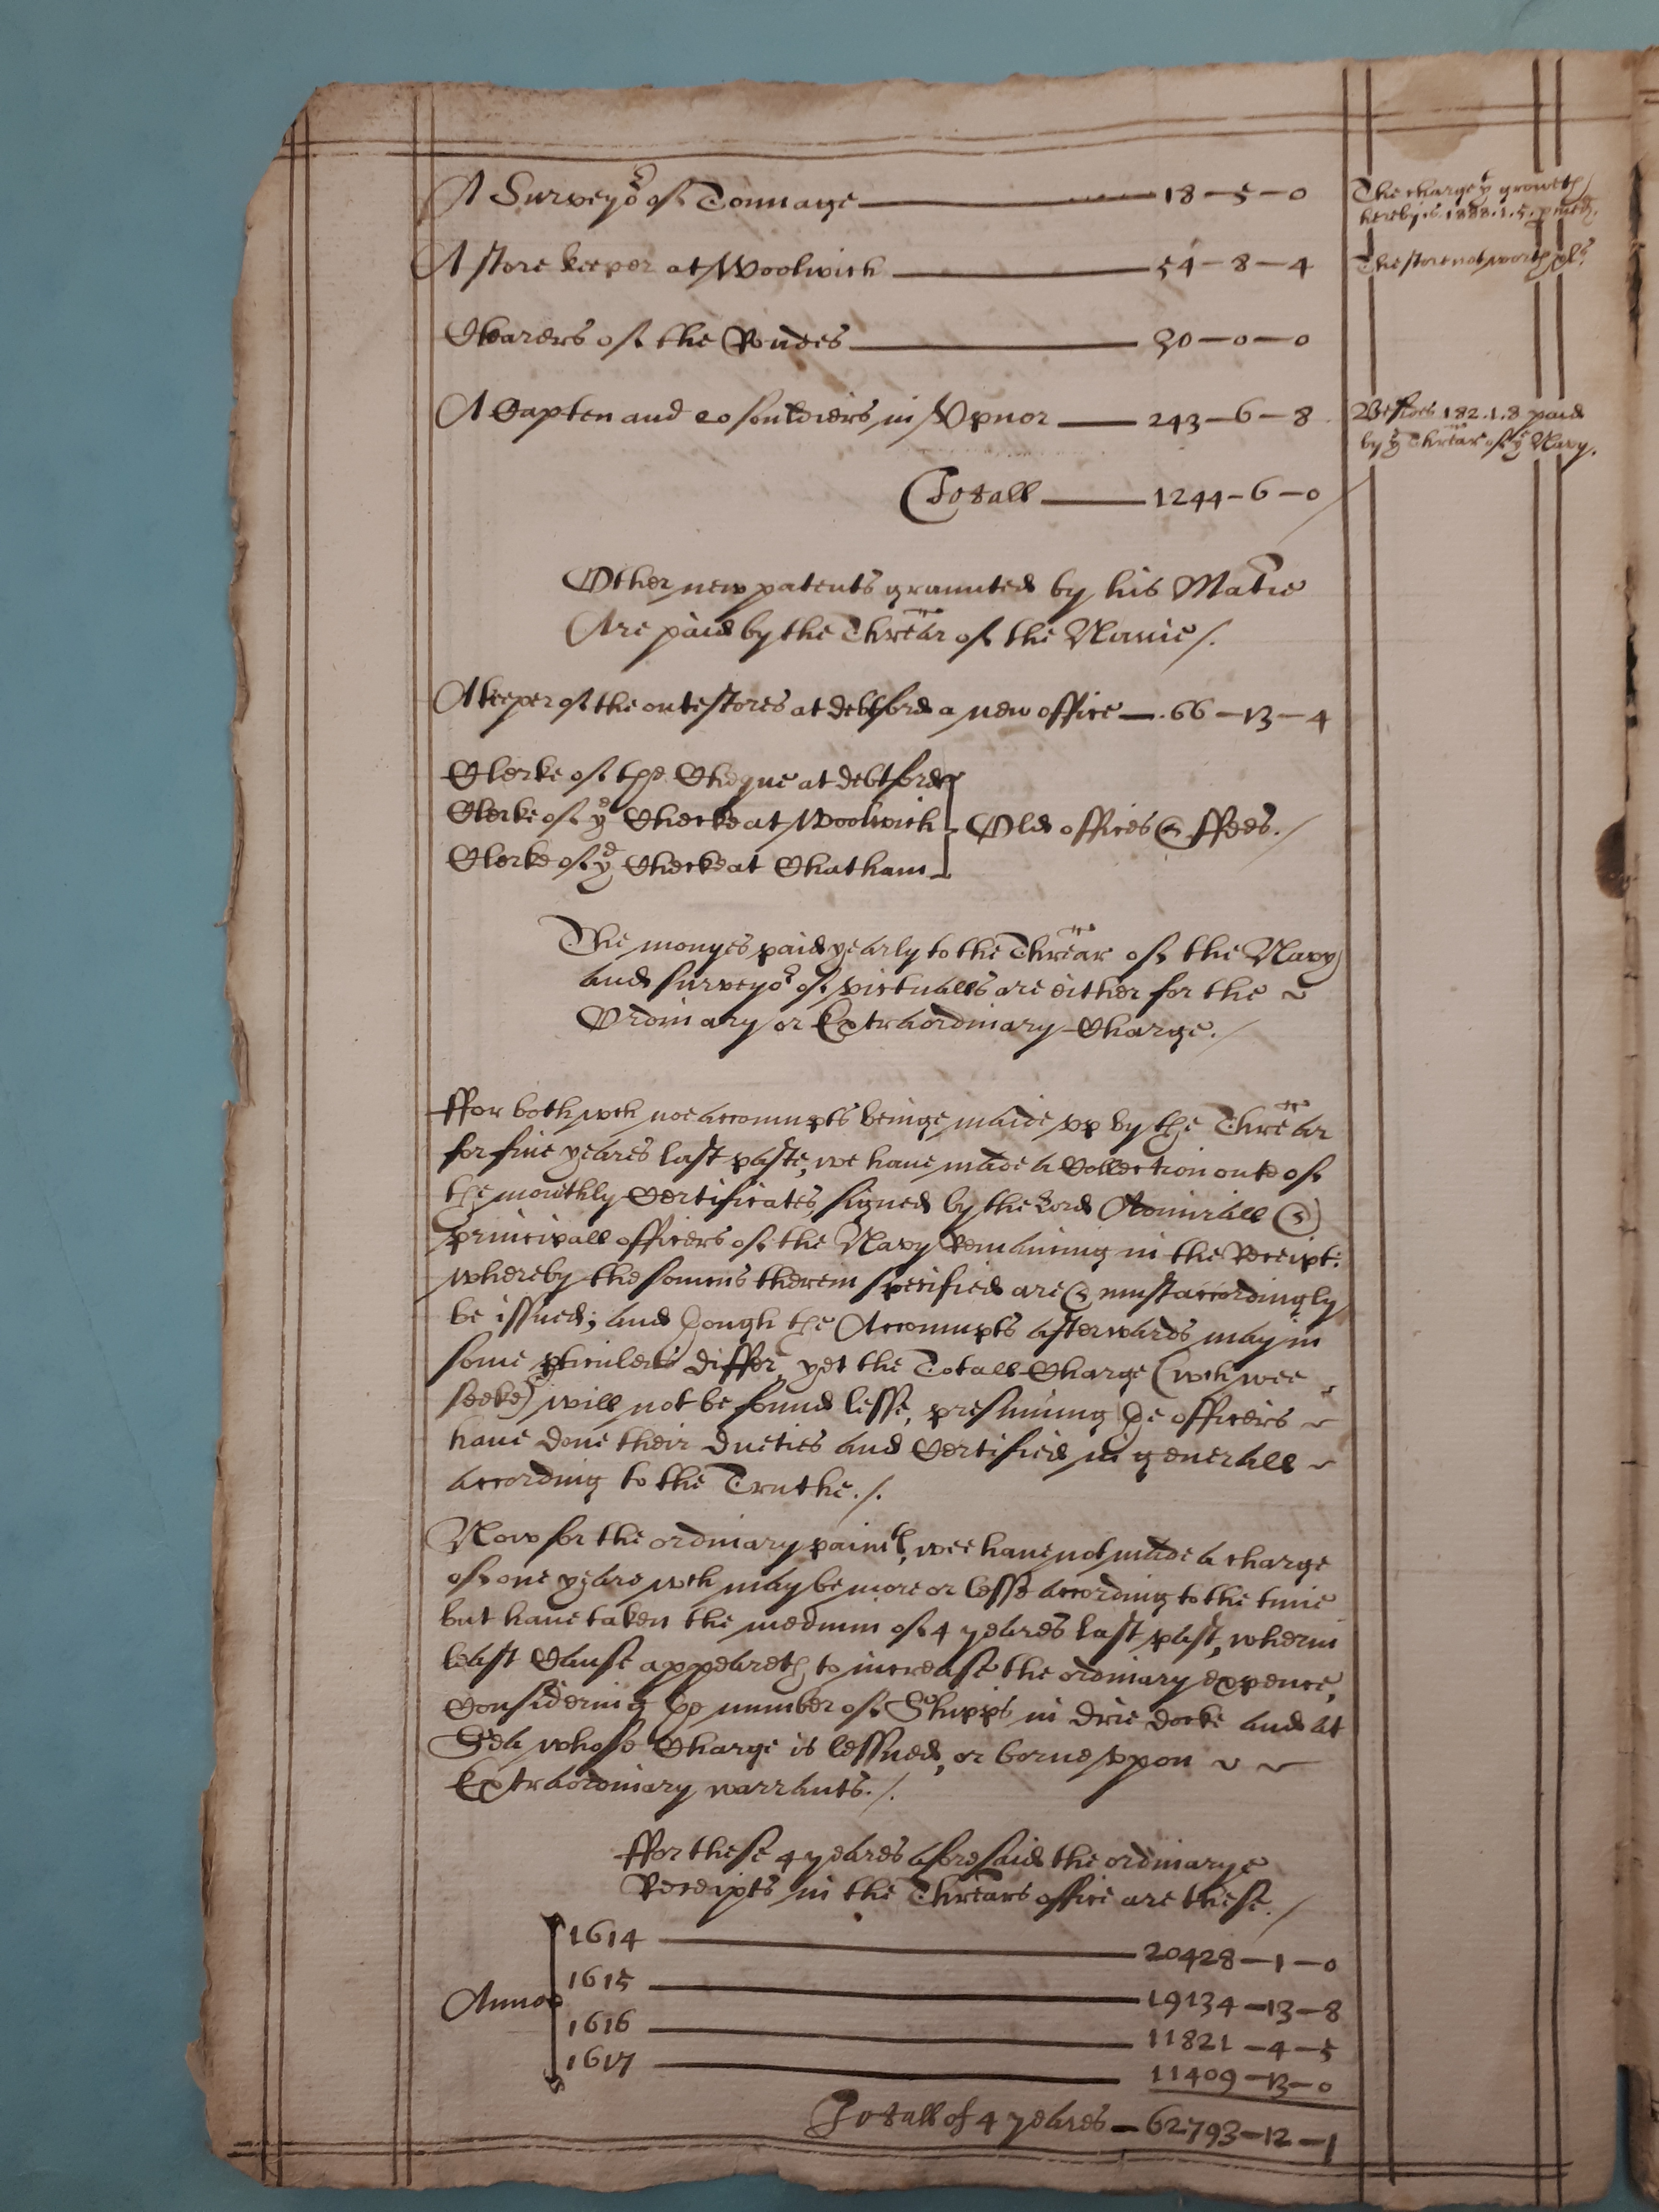 A Surveyor of Tonnage 18-5-0
The charge yt groweth
hereby is 1888.1.5.
A store keeper at Woolwich 54-8-4
The store not worth
Clearers of the Roades 30-0-0
A Capten and 20 souldiers in Vpnor 243-6-8
Besides 182.1.8 paid
by ye Threãr of ye Navy.
Totall 1244-6-0
Other new patents graunted by his Matie
Are paid by the Threãr of the Nauie /.
A keeper of the oute stores at debtford a new office 66-13-4
Clerke of the Cheque at debtford
Clerke of ye Checke at Woolwich Old offices & ffees. /
Clerke of ye Checke at Chatham
The monyes paid yearly to the Threãr of the Navy
and surveyor of victualls are either for the
Ordinary or Extraordinary Charge. /
ffor both wch noe accoumpts beinge maide vp by the Threãr
for fiue yeares last paste, we haue made a Collection oute of
the monthly Certificates, signed by the Lord Admirall &
principall officers of the Navy Remaining in the Receipt:
whereby the somms therein specified are & must accordingly
be issued; and though the Accoumpts afterwards may in
some pticulers differ, yet the Totall Charge (wch wee
seeke) will not be found lesse, presuming the officers
haue done their dueties and Certified in generall
according to the Truthe. /.
Now for the ordinary paimt, wee haue not made a charge
of one yeare wch may be more or lesse according to the time
but haue taken the medium of 4 yeares last past, wherin
least Cause appeareth to increase the ordinary expence,
Considering the number of Shipps in drie docke and at
Sea whose Charge is lessned, or borne vpon
Extraordinary warrants. /.
ffor these 4 yeares aforesaid the ordinarye
Receipts in the Threãrs office are these. /
1614 20428-1-0
1615 19134-13-8
Anno
1616 11821-4-5
1617 11409-13-0
Totall of 4 yeares 62793-12-1